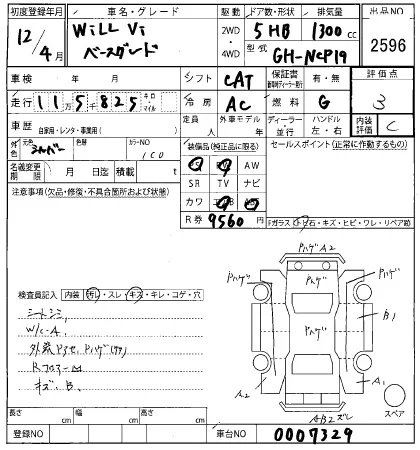 初度登録年月 車名・グレード 駆動 ドア数・形状 排気量 出品NO
12/4月 WiLL Vi ベースグレード 2WD・4WD 5 HB 1300cc 2596
型式 GH-NCP19
車検 年 月 シフト CAT 保証書 有・無 評価点
走行 11万5千825 キロ・マイル 冷房 AC 燃料 G 3
車歴 自家用・レンタ・事業用( ) 定員 人 外車モデル 年 ディーラー・並行 ハンドル 左・右 内装評価 C
外色 元色 シルバー 色替 カラーNO 1C0 装備品(純正品に限る) セールスポイント(正常に作動するもの)
PS PW AW
名義変更期限 月 日迄 積載 t SR TV ナビ
注意事項(欠品・修復・不具合箇所および状態) カワ
R券 9560円 Fガラス(トビ石・キズ・ヒビ・ワレ・リペア跡)
PハゲA2
Pハゲ Pハゲ Pハゲ
検査員記入 内装(汚れ・スレ・キズ・キレ・コゲ・穴)
シートシミ
W/C-A
B1
外装Pアセ、Pハゲ
Rフロアー凹
キズ、B
A2 A1
スペア
AB2ズレ
長さ cm 幅 cm 高さ cm
登録NO 車台NO 0007329